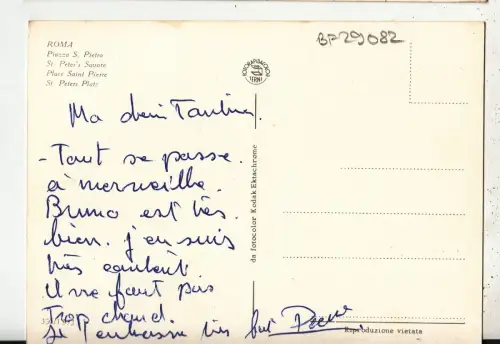 ROMA
Piazza S. Pietro
St. Peter's Square
Place Saint Pierre
St. Peters Platz
BF29082
Ma
- Tout se passe
à merveille.
Bruno est très
bien. j'en suis
très content.
Il ne fait pas
Trop chaud.
Je embrasse très
da fotocolor Kodak Ektachrome
TERNI
Riproduzione vietata